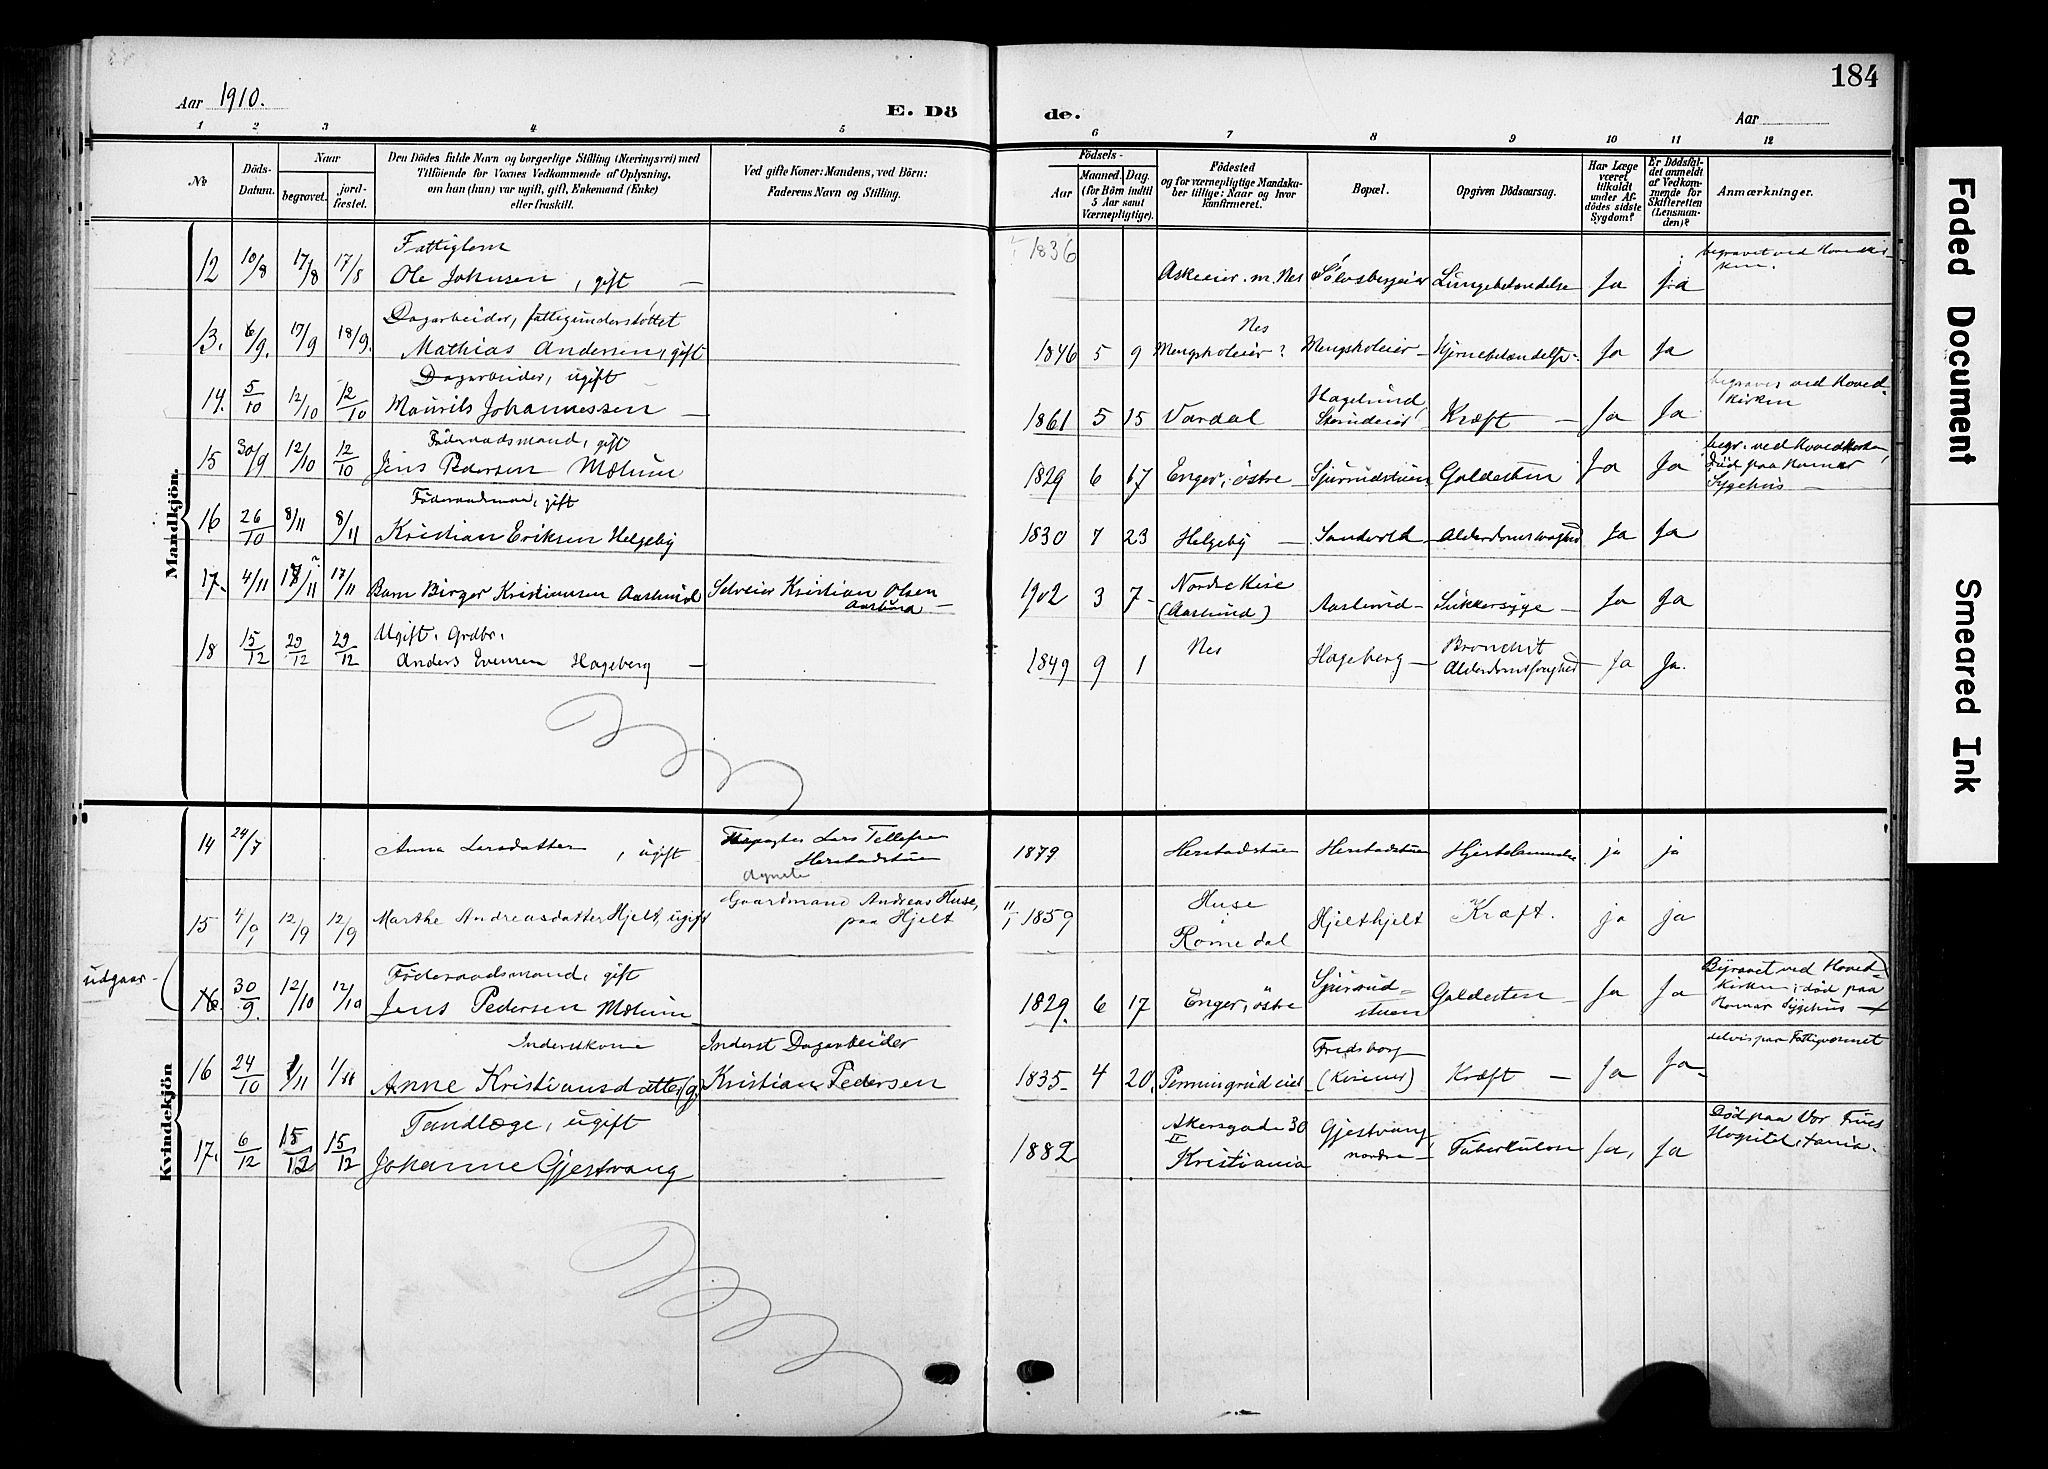 184
Aar 1910.
E. Dö de.
Aar
1 2 3 4 5 6 7 8 9 10 11 12
No
Döds-Datum.
Naar
begravet.
jord-fæstet.
Den Dödes fulde Navn og borgerlige Stilling (Næringsvei) med
Tilföiende for Voxnes Vedkommende af Oplysning,
om han (hun) var ugift, gift, Enkemand (Enke)
eller fraskilt.
Ved gifte Koner: Mandens, ved Börn:
Faderens Navn og Stilling.
Födsels-
Aar
Maaned. Dag.
(for Börn indtil
5 Aar samt
Værnepligtige).
Födested
og for værnepligtige Mandska-
ber tillige: Naar og hvor
konfirmeret.
Bopæl.
Opgiven Dödsaarsag.
Har Læge
været
tilkaldt
under Af-
dödes sidste
Sygdom?
Er Dödsfal-
det anmeldt
af Vedkom-
mende for
Skifteretten
(Lensman-
den)?
Anmærkninger.
Mandkjön.
12 10/8 17/8 17/8 Fattiglem
Ole Johnsen, gift — 1836 Askeeier. m. Nes Lungebetændelse Ja Ja begravet ved Hovedkir-
ken.
13. 6/9. 17/9 18/9. Dagarbeider, fattigunderstøttet
Mathias Andersen, gift 1846 5 9 Nes
Mengsholeier? Mengsholeier — Hjernebetændelse Ja Ja
14. 5/10 12/10 12/10 Dagarbeider, ugift
Maurits Johannessen — 1861 5 15 Vardal Kræft — Ja Ja begraves ved Hoved-
kirken
15 30/9 12/10 12/10 Föderaadsmand, gift
Jens Pedersen Mælum 1829 6 17 Enger, östre Sjürrudstuen Galdesten Ja Ja begr. ved Hovedkirken,
Død paa Hamar
Sygehus —
16 26/10 8/11 8/11 Föderaadsman, gift
Kristian Eriksen Helgeby 1830 7 23 Helgeby — Sandvold — Alderdomssvaghed Ja Ja
17. 4/11 17/11 17/11 Barn Birger Kristiansen Aaslund Selveier Kristian Olsen
Aaslund — 1902 3 7 — Nordre Kise
(Aaslund) Aaslund — Sukkersyge — Ja Ja
18 15/12 29/12 29/12 Ugift. Grdbr.
Anders Evensen Hageberg — 1849 9 1 Nes Hageberg — Bronchit
Ja Ja.
Kvindekjön
14 24/7 Anna Larsdatter, ugift Lars Tellefsen
Herstadstuen 1879 Herstadstuen Herstadstuen Hjertelammelse ja ja
Agnete
15 4/9 12/9 12/9 Marthe Andreasdatter Hjelt, ugift Gaardmand Andreas Huse,
paa Hjelt 11/1 1859 Huse
i
Romedal Hjelthjelt Kræft. ja ja
udgaar
16. 30/9. 12/10 12/10 Föderaadsmand, gift
Jens Pedersen Mælum 1829. 6 17 Enger, östre Sjürrud-
stuen Galdesten — Ja Ja Begravet ved Hoved-
kirken, død paa
Hamar Sygehus —
16 24/10 1/11 1/11 Inderstkone
Anne Kristiansdatter (g) Inderst Dagarbeider
Kristian Pedersen 1835 — 4 20. Penningrudeiet Fredsborg
Kræft — Ja Ja — delvis paa Fattigvæsnet
17. 6/12 15/12 15/12 Tandlæge, ugift
Johanne Gjestvang 1882 Akersgade 30
II
Kristiania Gjestvang
nordre — Tuberkulose Ja, Ja Død paa Vor Frues
Hospital,
Faded Document
Smeared Ink